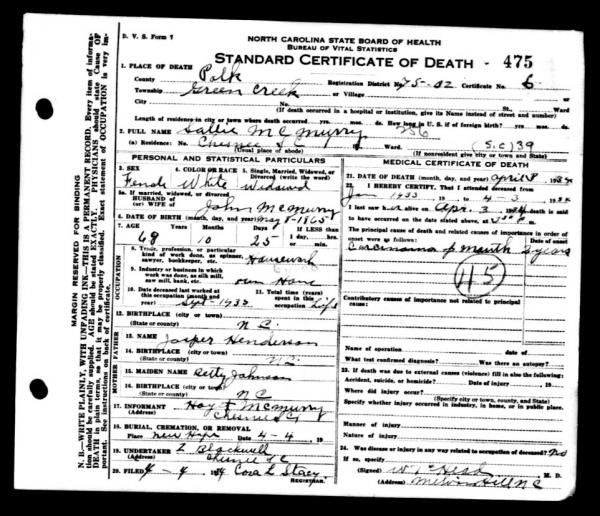 D. V. S. Form 7
NORTH CAROLINA STATE BOARD OF HEALTH
BUREAU OF VITAL STATISTICS
STANDARD CERTIFICATE OF DEATH - 475
1. PLACE OF DEATH
County Polk Registration District No. 75-02 Certificate No. 6
Township Green Creek or Village
City No. St. Ward
(If death occurred in a hospital or institution, give its Name instead of street and number)
Length of residence in city or town where death occurred yrs. mos. ds. How long in U. S. if of foreign birth? yrs. mos. ds.
2. FULL NAME Sallie McMurry 236
(a) Residence: No. Chesnee S C Ward. (S.C) 39
(Usual place of abode) (If nonresident give city or town and State)
PERSONAL AND STATISTICAL PARTICULARS
3. SEX 4. COLOR OR RACE 5. Single, Married, Widowed, or Divorced (write the word)
Female White Widowed
5a. If married, widowed, or divorced
HUSBAND of
(or) WIFE of John McMurry
6. DATE OF BIRTH (month, day, and year) May 8-1865
7. AGE Years Months Days If LESS than 1 day, hrs. or min.
68 10 25
OCCUPATION
8. Trade, profession, or particular kind of work done, as spinner, sawyer, bookkeeper, etc. Housework
9. Industry or business in which work was done, as silk mill, saw mill, bank, etc. own Home
10. Date deceased last worked at this occupation (month and year) Sept-1933
11. Total time (years) spent in this occupation Life
12. BIRTHPLACE (city or town)
(State or county) N C
FATHER
13. NAME Jasper Henderson
14. BIRTHPLACE (city or town)
(State or county) N.C.
MOTHER
15. MAIDEN NAME Betty Johnson
16. BIRTHPLACE (city or town)
(State or county) N C
17. INFORMANT McMurry
(Address) Chesnee S C
18. BURIAL, CREMATION, OR REMOVAL
Place New Hope Date 4-4, 19
19. UNDERTAKER Blackwell
(Address) Chesnee S C
20. FILED 4-4 34 Cora L Stacy
REGISTRAR.
MEDICAL CERTIFICATE OF DEATH
21. DATE OF DEATH (month, day, and year) April 1934
22. I HEREBY CERTIFY, That I attended deceased from
Jan 1933 to 4-3 19
I last saw h alive on Apr. 3 1934 death is said
to have occurred on the date stated above, at
The principal cause of death and related causes of importance in order of
onset were as follows: Date of onset
Carcinoma of mouth 2 years
45
Contributory causes of importance not related to principal
cause:
Name of operation Date of
What test confirmed diagnosis? Was there an autopsy?
23. If death was due to external causes (violence) fill in also the following:
Accident, suicide, or homicide? Date of injury 19
Where did injury occur?
(Specify city or town, county, and State)
Specify whether injury occurred in industry, in home, or in public place.
Manner of injury
Nature of injury
24. Was disease or injury in any way related to occupation of deceased? No
If so, specify
(Signed) M. D.
(Address) N C
MARGIN RESERVED FOR BINDING
N. B.—WRITE PLAINLY, WITH UNFADING INK—THIS IS A PERMANENT RECORD. Every item of information should be carefully supplied. AGE should be stated EXACTLY. PHYSICIANS should state Cause OF DEATH in plain terms, so that it may be properly classified. Exact statement of OCCUPATION is very important. See instructions on back of certificate.